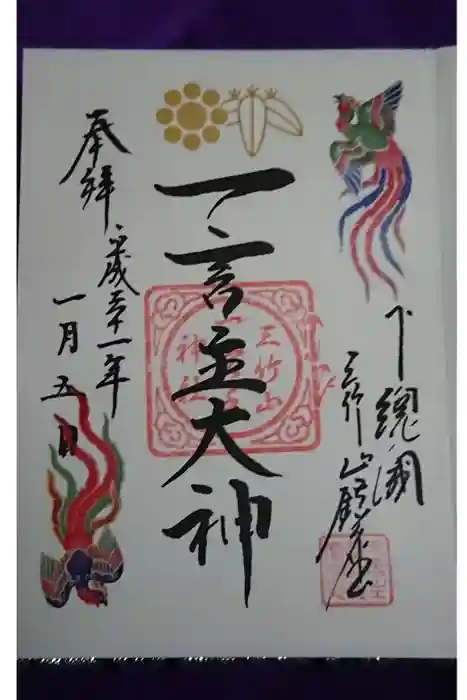 下總國
三竹山鎮座
一言主大神
三竹山
神社
平成三十一年
一月五日
奉拝